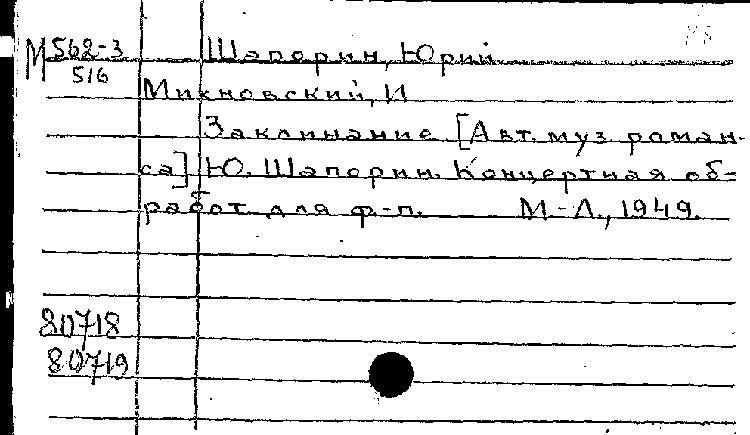 М 562-3 Шапорин, Юрий
516
Михновский, И
Заклинание [Авт. муз. роман-
са] Ю. Шапорин. Концертная об-
работ. для ф-п. М-Л., 1949.
80718
80719